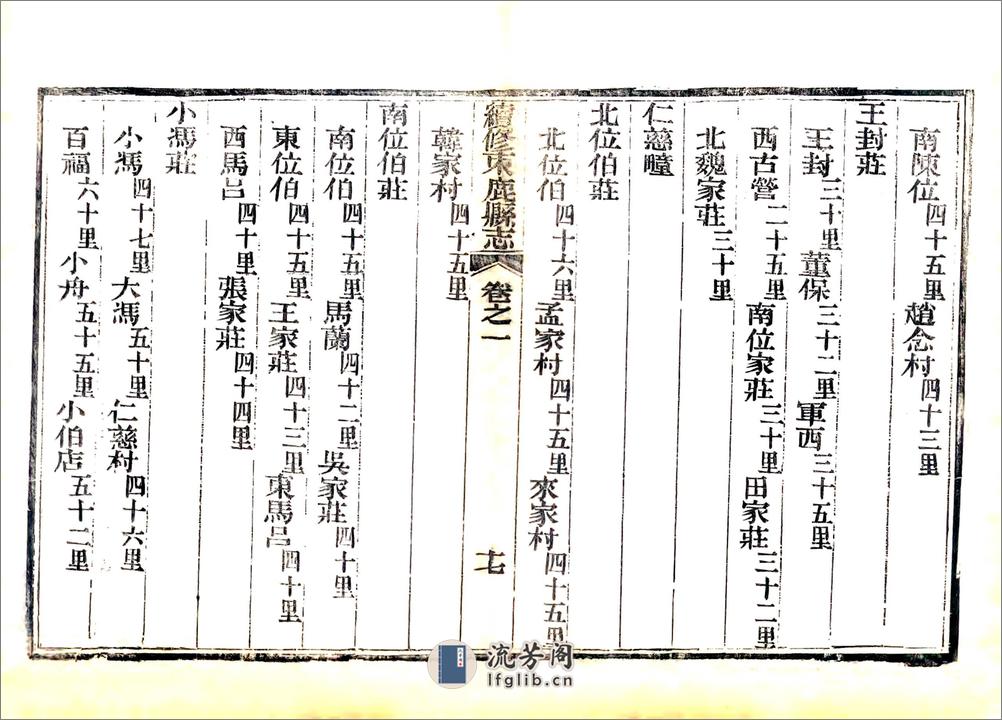 南陳位四十五里趙念村四十三里
王封莊
王封三十里董保三十二里軍西三十五里
西古營二十五里南位家莊三十里田家莊三十二里
北魏家莊三十里
仁慈疃
北位伯莊
北位伯四十六里孟家村四十五里來家村四十五里
續修束鹿縣志 卷之一 十七
韓家村四十五里
南位伯莊
南位伯四十五里馬蘭四十二里吳家莊四十里
東位伯四十五里王家莊四十三里東馬呂四十里
西馬呂四十里張家莊四十四里
小馮莊
小馮四十七里大馮五十里仁慈村四十六里
百福六十里小舟五十五里小伯店五十二里
流芳阁
lfglib.cn